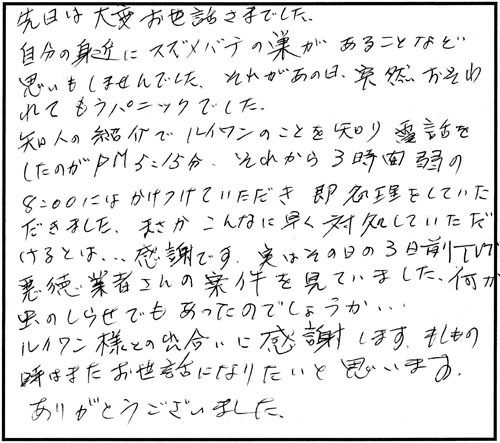 先日は大変お世話さまでした。
自分の身近にスズメバチの巣があることなど
思いもしませんでした。それがあの日、突然おそわ
れてもうパニックでした。
知人の紹介でルイワンのことを知り電話を
したのがPM5:15分、それから3時間弱の
8:00にはかけつけていただき即処理をしていた
だきました。まさかこんなに早く対処していただ
けるとは...感謝です。実はその日の3日前TVで
悪徳業者さんの案件を見ていました。何か
虫のしらせでもあったのでしょうか...
ルイワン様との出合いに感謝します。もしもの
時はまたお世話になりたいと思います。
ありがとうございました。